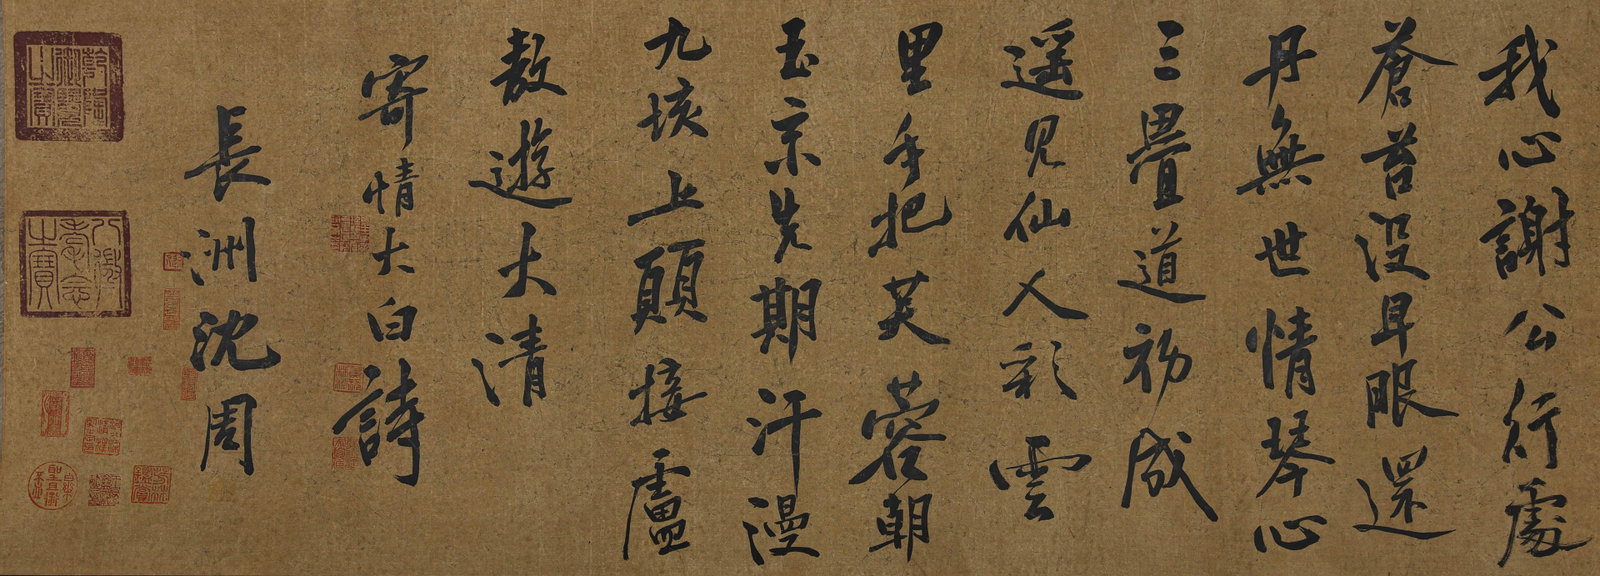 我心謝公行處
蒼苔没早眼還
丹無世情琴心
三疊道初成
遥見仙人彩雲
里手把芙蓉朝
玉京先期汗漫
九垓上願接盧
敖遊太清
寄情太白詩
長洲沈周
乾隆御覽之寶
八徵耄念之寶